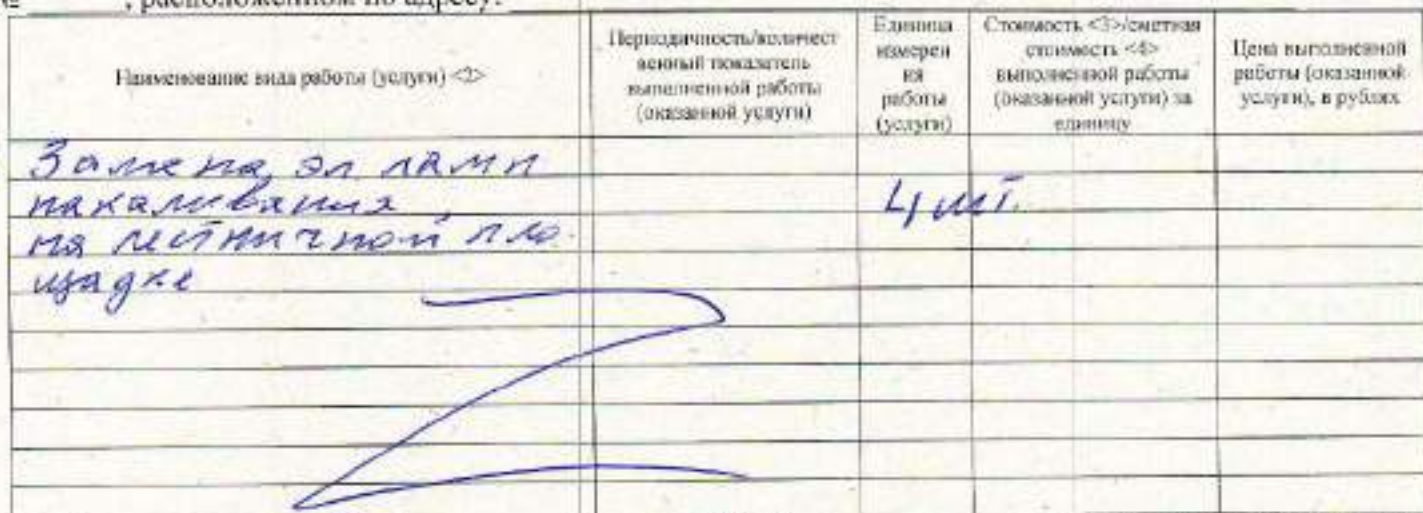 , расположенном по адресу:
Наименование вида работы (услуги) <2>
Периодичность/количест
венный показатель
выполненной работы
(оказанной услуги)
Единица
измерен
ия
работы
(услуги)
Стоимость <3>/сметная
стоимость <4>
выполненной работы
(оказанной услуги) за
единицу
Цена выполненной
работы (оказанной
услуги), в рублях
Замена эл ламп
накаливания
4 шт.
на лестничной пло
щадке